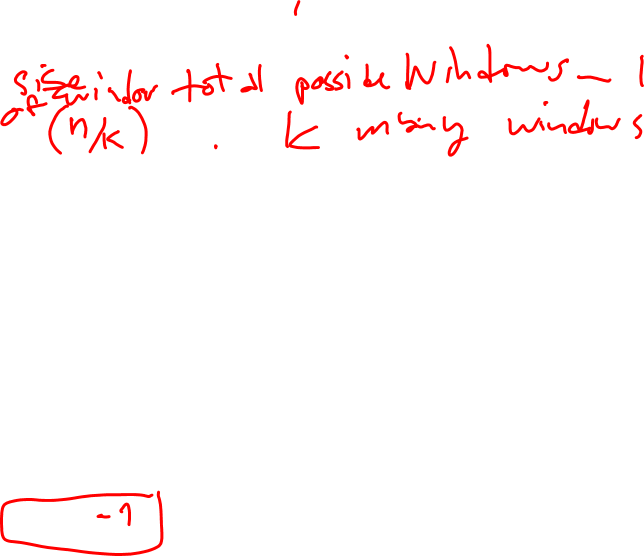 size
of window total possible Windows -
(n/k) . k many windows
-1